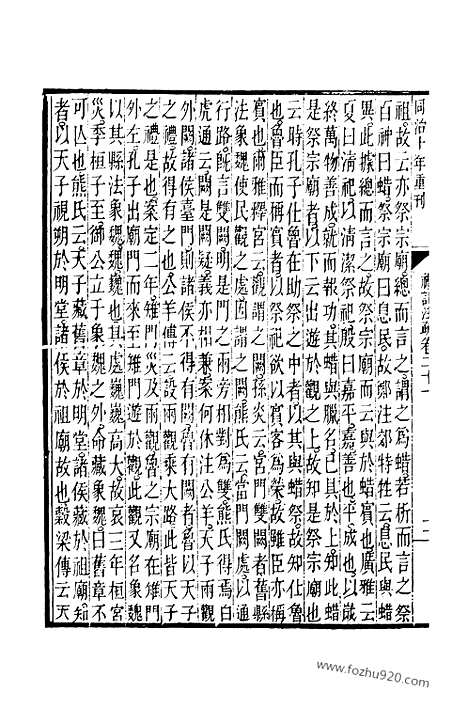 同治十年重刊
禮記注疏卷二十一
二
祖故云亦祭宗廟總而言之謂之爲蜡若析而言之祭
百神曰蜡祭宗廟曰息民故鄭注郊特牲云息民與蜡
異此據總而言之故祭宗廟而云與於蜡賓也廣雅云
夏曰清祀以清潔祭祀殷曰嘉平嘉善也平成也以歲
終萬物善成就而報功其蜡與臘名已具於上知此蜡
是祭宗廟者以下云出遊於觀之上故知是祭宗廟也
云時孔子仕魯在助祭之中者以其與蜡祭故知仕魯
也魯臣而稱賓者以祭祀欲以賓客爲榮故雖臣亦稱
賓也爾雅釋宮云觀謂之闕孫炎云宮門雙闕者舊縣
法象魏使民觀之處因謂之闕熊氏云當門闕處以通
行路旣言雙闕明是門之兩旁相對爲雙熊氏得焉白
虎通云闕是闕疑義亦相兼案何休注公羊天子兩觀
外闕諸侯臺門則諸侯不得有闕魯有闕者魯以天子
之禮故得有之也公羊傳云設兩觀乘大路此皆天子
之禮是也案定二年雉門災及兩觀魯之宗廟在雉門
外左孔子出廟門而來至雉門遊於觀此觀又名象魏
以其縣法象魏魏巍也其處巍巍高大故哀三年桓宮
災季桓子至御公立于象魏之外命藏象魏曰舊章不
可亾也熊氏云天子藏舊章於明堂諸侯藏於祖廟知
者以天子視朔於明堂諸侯於祖廟故也穀梁傳云天
www.fozhu920.com